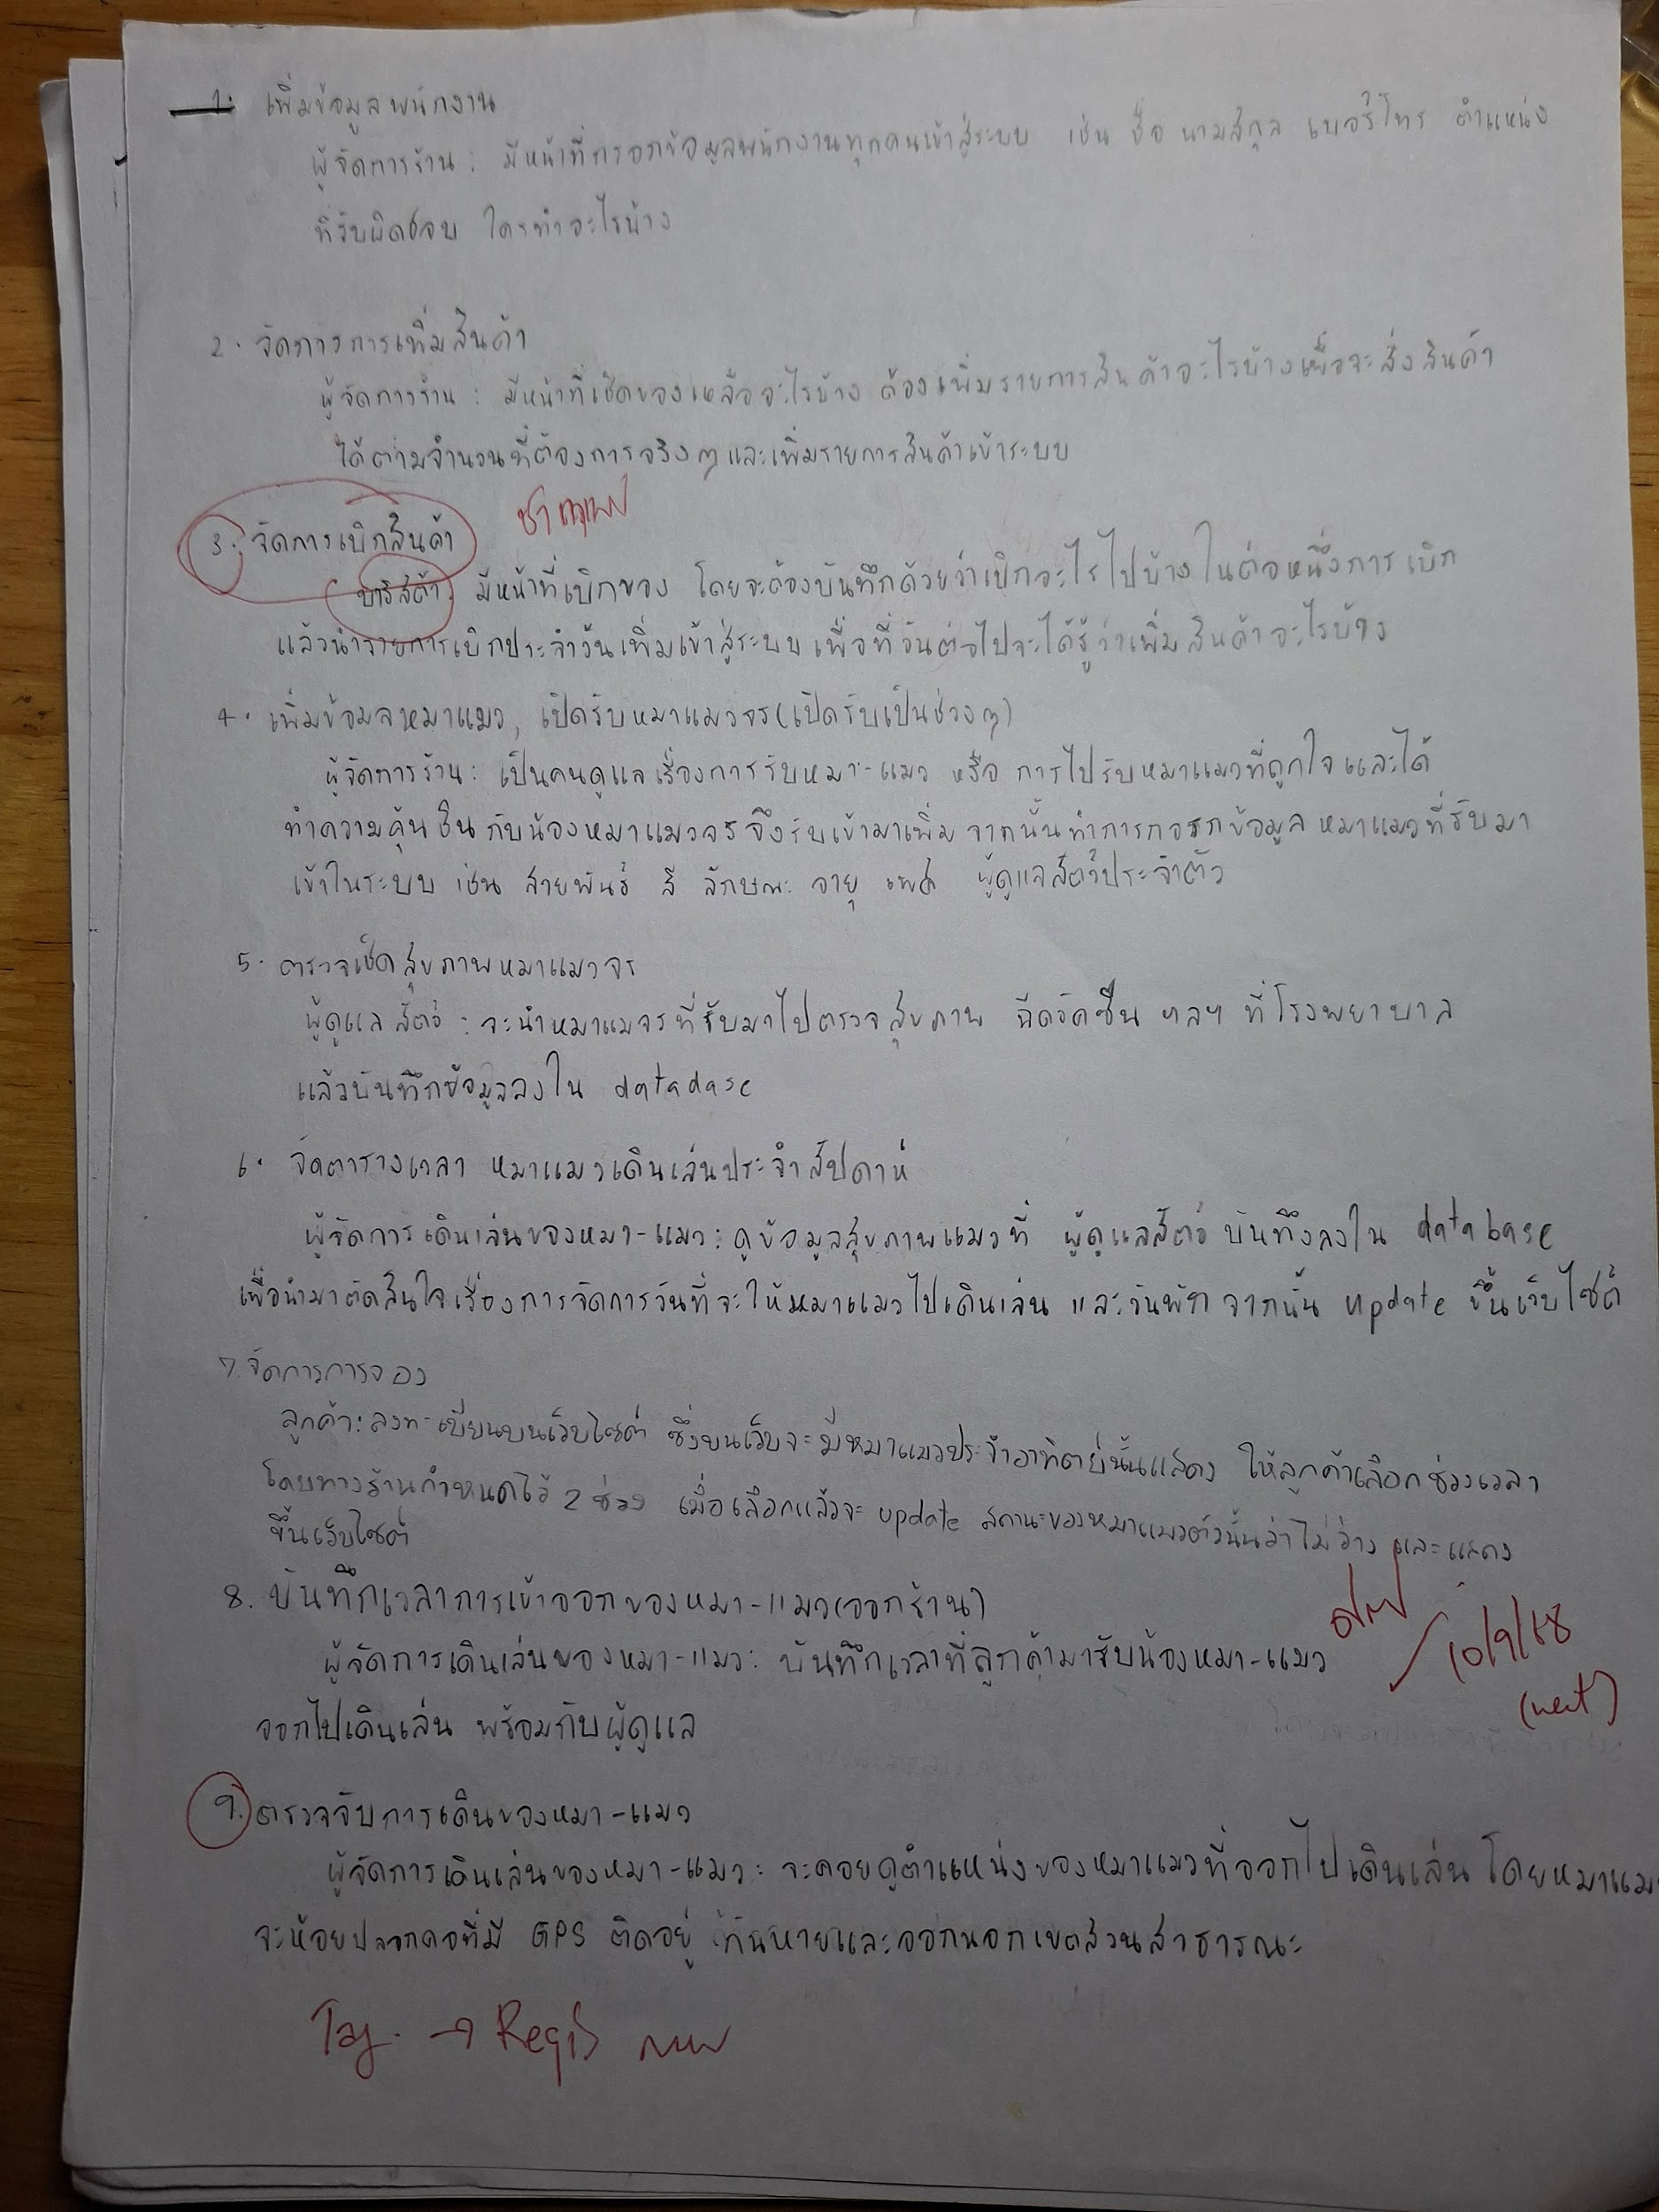 1. เพิ่มข้อมูลพนักงาน
ผู้จัดการร้าน : มีหน้าที่กรอกข้อมูลพนักงานทุกคนเข้าสู่ระบบ เช่น ชื่อ นามสกุล เบอร์โทร ตำแหน่ง
ที่รับผิดชอบ ใครทำอะไรบ้าง
2. จัดการการเพิ่มสินค้า
ผู้จัดการร้าน : มีหน้าที่เช็คของเหลืออะไรบ้าง ต้องเพิ่มรายการสินค้าอะไรบ้างเพื่อจะสั่งสินค้า
ได้ตามจำนวนที่ต้องการจริงๆ และเพิ่มรายการสินค้าเข้าระบบ
3. จัดการเบิกสินค้า
บาริสต้า : มีหน้าที่เบิกของ โดยจะต้องบันทึกด้วยว่าเบิกอะไรไปบ้างในต่อหนึ่งการเบิก
แล้วนำรายการเบิกประจำวันเพิ่มเข้าสู่ระบบเพื่อที่วันต่อไปจะได้รู้ว่าเพิ่มสินค้าอะไรบ้าง
4. เพิ่มข้อมูลหมาแมว, เปิดรับหมาแมวจร(เปิดรับเป็นช่วงๆ)
ผู้จัดการร้าน : เป็นคนดูแลเรื่องการรับหมา-แมว หรือ การไปรับหมาแมวที่ถูกใจและได้
ทำความคุ้นชินกับน้องหมาแมวจรจึงรับเข้ามาเพิ่ม จากนั้นทำการกอรกข้อมูลหมาแมวที่รับมา
เข้าในระบบ เช่น สายพันธ์ สี ลักษณะ อายุ เพศ ผู้ดูแลสัตว์ประจำตัว
5. ตรวจเช็คสุขภาพหมาแมวจร
ผู้ดูแลสัตว์ : จะนำหมาแมจรที่รับมาไปตรวจสุขภาพ ฉีดวัคซีน ฯลฯ ที่โรงพยาบาล
แล้วบันทึกข้อมูลลงใน datadase
6. จัดตารางเวลา หมาแมวเดินเล่นประจำสัปดาห์
ผู้จัดการเดินเล่นของหมา-แมว : ดูข้อมูลสุขภาพแมวที่ ผู้ดูแลสัตว์ บันทึงลงใน database
เพื่อนำมาตัดสินใจเรื่องการจัดการวันที่จะให้หมาแมวไปเดินเล่น และวันพัก จากนั้น update ขึ้นเว็บไซต์
7. จัดการการจอง
ลูกค้า : ลงทะเบียนบนเว็บไซต์ ซึ่งบนเว็บจะมีหมาแมวประจำอาทิตย์นั้นแสดง ให้ลูกค้าเลือกช่วงเวลา
โดยทางร้านกำหนดไว้ 2 ช่วง เมื่อเลือกแล้วจะ update สถานะของหมาแมวตัวนั้นว่าไม่ว่าง และแสดง
ขึ้นเว็บไซต์
8. บันทึกเวลาการเข้าออกของหมา-แมว(ออกร้าน)
ผู้จัดการเดินเล่นของหมา-แมว : บันทึกเวลาที่ลูกค้ามารับน้องหมา-แมว
10/9/68
ออกไปเดินเล่น พร้อมกับผู้ดูแล
(next)
9. ตรวจจับการเดินของหมา-แมว
ผู้จัดการเดินเล่นของหมา-แมว : จะคอยดูตำแหน่งของหมาแมวที่ออกไปเดินเล่น โดยหมาแมว
จะห้อยปลอกคอที่มี GPS ติดอยู่ กันหายและออกนอกเขตสวนสาธารณะ
Tag. → Regis